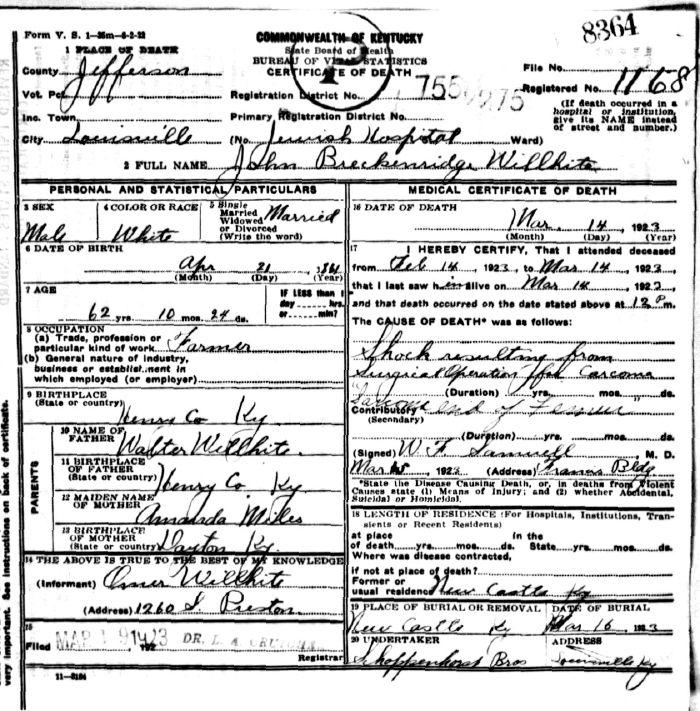 8364
Form V. S. 1-35m-6-2-22
COMMONWEALTH OF KENTUCKY
State Board of Health
BUREAU OF VITAL STATISTICS
CERTIFICATE OF DEATH
1 PLACE OF DEATH
County Jefferson
File No.
Vot. Pct.
Registration District No. 755
Registered No. 1168
Inc. Town
Primary Registration District No.
(If death occurred in a hospital or institution, give its NAME instead of street and number.)
City Louisville (No. Jewish Hospital Ward)
2 FULL NAME John Breckenridge Willhite
PERSONAL AND STATISTICAL PARTICULARS
3 SEX Male
4 COLOR OR RACE White
5 Single Married Widowed or Divorced (Write the word) Married
6 DATE OF BIRTH
Apr 21
(Month) (Day) (Year)
7 AGE
62 yrs. 10 mos. 24 ds.
IF LESS than 1 day hrs. or min?
8 OCCUPATION
(a) Trade, profession or particular kind of work Farmer
(b) General nature of industry, business or establishment in which employed (or employer)
9 BIRTHPLACE
(State or country) Henry Co Ky
PARENTS
10 NAME OF FATHER Walter Willhite
11 BIRTHPLACE OF FATHER
(State or country) Henry Co. Ky
12 MAIDEN NAME OF MOTHER Amanda Miles
13 BIRTHPLACE OF MOTHER
(State or country) Dayton Ky.
14 THE ABOVE IS TRUE TO THE BEST OF MY KNOWLEDGE
(Informant) Omer Willhite
(Address) 1260 S. Preston
15
Filed MAR 19 1923, 192 DR. L. A.
Registrar
11-3184
MEDICAL CERTIFICATE OF DEATH
16 DATE OF DEATH
Mar. 14, 1923
(Month) (Day) (Year)
17 I HEREBY CERTIFY, That I attended deceased
from Feb 14, 1923, to Mar 14, 1923,
that I last saw him alive on Mar 14, 1923,
and that death occurred on the date stated above at 12 pm.
The CAUSE OF DEATH* was as follows:
Shock resulting from
Surgical Operation for Sarcoma
(Duration) yrs. mos. ds.
Contributory Sarcoma end of Femur
(Secondary)
(Duration) yrs. mos. ds.
(Signed) W. F. M. D.
Mar 15, 1923 (Address) Francis Bldg
*State the Disease Causing Death, or, in deaths from Violent Causes state (1) Means of Injury; and (2) whether Accidental, Suicidal or Homicidal.
18 LENGTH OF RESIDENCE (For Hospitals, Institutions, Transients or Recent Residents)
at place of death yrs. mos. ds. In the State yrs. mos. ds.
Where was disease contracted,
if not at place of death?
Former or usual residence New Castle Ky
19 PLACE OF BURIAL OR REMOVAL
New Castle Ky
DATE OF BURIAL
Mar 16, 1923
20 UNDERTAKER
Schoppenhorst Bros
ADDRESS
Louisville Ky
very important. See instructions on back of certificate.